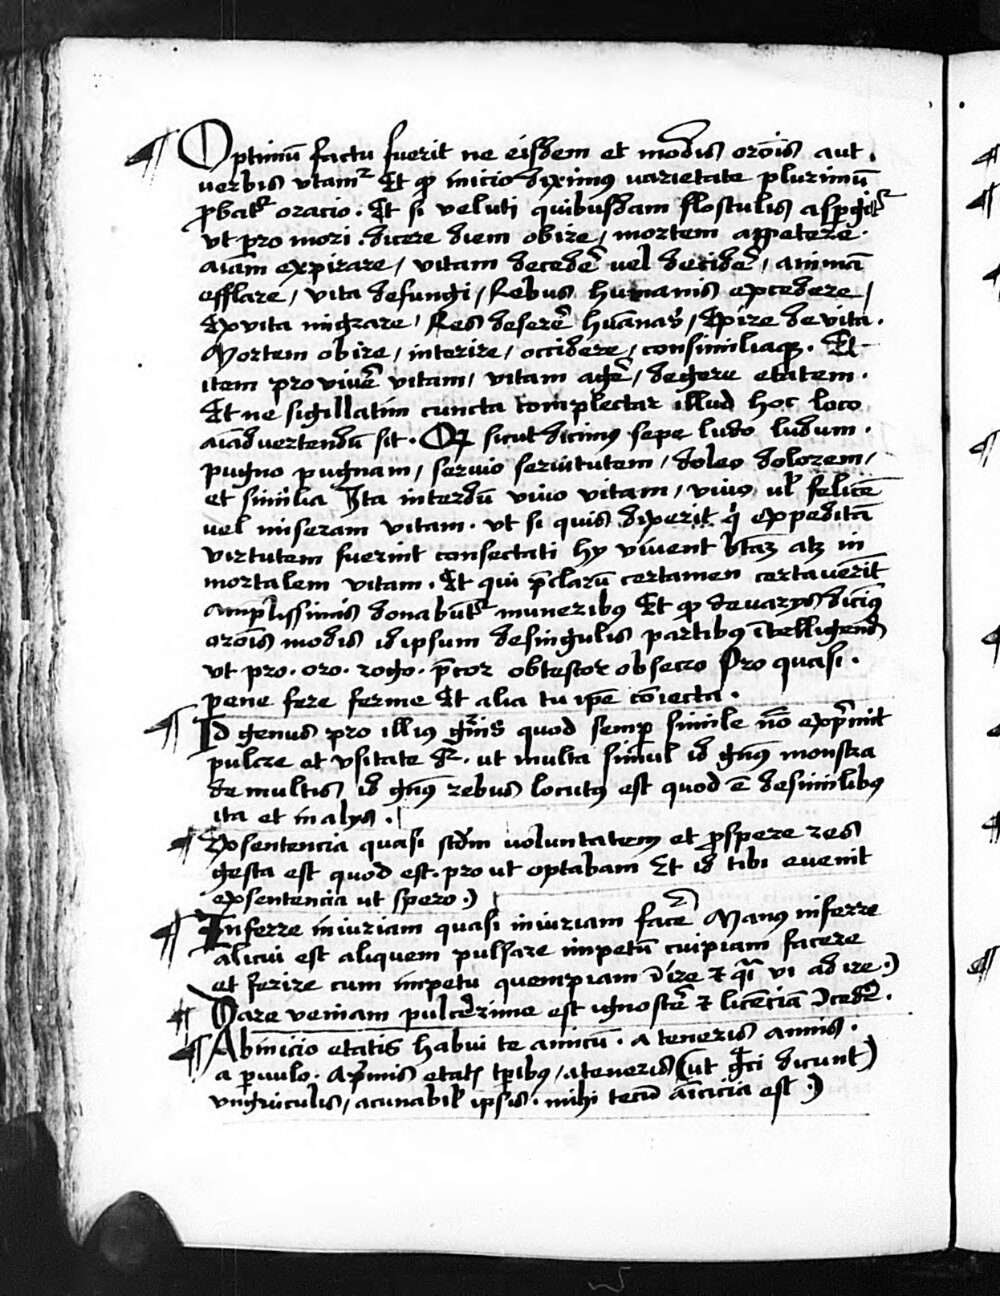 ¶ Optimū factu fuerit ne eisdem et modis orōis aut
verbis vtamr Et ꝙ inicio diximus varietate plurimū
ꝓbatr oracio. Et si veluti quibusdam flosculis aspgitr
vt pro mori. dicere diem obire / mortem appetere.
aīam expirare / vitam decederē vel deciderē / animā
efflare / vita defungi / Rebus humanis excedere /
Ex vita migrare / Res deserē hūanas / Exire de vita.
Mortem obire / interire / occidere / consimiliaqꝫ. Et
item pro viuē vitam / vitam agē / degere etatem.
Et ne sigillatim cuncta complectar illud hoc loco
aīaduertendū sit. Qꝫ sicut dicimus sepe ludo ludum.
pugno pugnam / seruio seruitutem / doleo dolorem /
et similia Ita interdū viuo vitam / viuo vl' felicē
vel miseram vitam. vt si quis dixerit q̇ expeditā
virtutem fuerint consectati hy viuent btāꝫ atꝫ in
mortalem vitam. Et qui p̄clarū certamen certauerīt
amplissimis donabūtr muneribus Et ꝙ de varys dicīus
orōis modis id ipsum de singulis partibus ītelligend
vt pro. oro. rogo. p̄cor obtestor obsecro Pro quasi.
pene fere ferme Et alia tu ipē cōiecta.
¶ Id genus pro illius gn̄is quod semper simile nō exp̄mit
pulcre et vsitate dr. ut multa simul id gn̄us monstra
de multis id gn̄us rebus locutus est quod ē de similibus
ita et in alys.
¶ Ex sentencia quasi scdm voluntatem et ꝓspere res
gesta est quod est. pro ut optabam Et id tibi euenit
ex sentencia ut spero.)
¶ Inferre iniuriam quasi iniuriam facē Manus inferre
alicui est aliquem pulsare impetū cuipiam facere
et ferire cum impetu quempiam adire ⁊ q̄i vi adire.)
¶ Dare veniam pulcerrime est ignoscē ⁊ licēciā ɔcedē.
¶ Ab inicio etatis habui te amicū. a teneris annis.
a paruulo. a p̄mis etatis tp̄ibus / a teneris (ut gc̄i dicunt)
vnguiculis / a cunabil' ipsis. mihi tecū aīcicia est.)